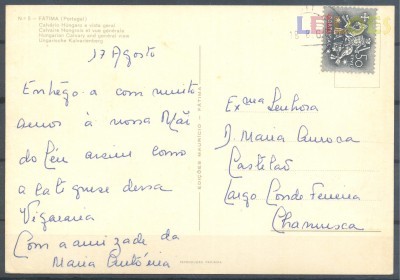 Nº 5 - FÁTIMA (Portugal)
Calvário Húngaro e vista geral
Calvaire Hongrois et vue générale
Hungarian Calvary and general view
Ungarische Kalvarienberg
17 Agosto
Entrego-a com muito
amor à nossa Mãi
do Céu assim como
a catequese dessa
Vigararia
Com a amizade da
Maria Antónia
EDIÇÕES MAURÍCIO - FÁTIMA
Exma Senhora
D. Maria Aurora
Castelão
Largo Conde Ferreira
Chamusca